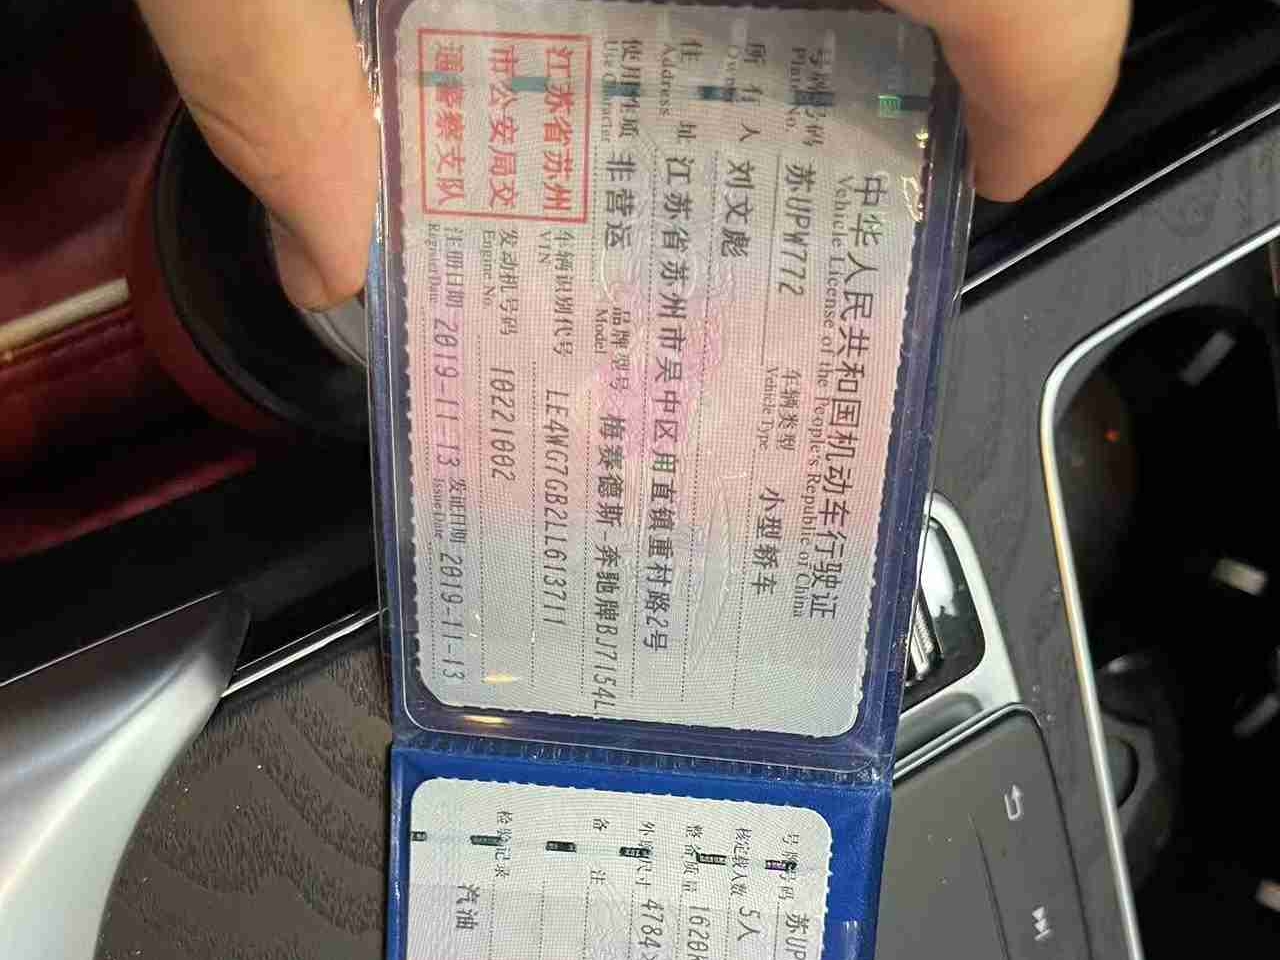 中华人民共和国机动车行驶证
Vehicle License of the People's Republic of China
号牌号码 苏UPW772 车辆类型 小型轿车
Plate No. Vehicle Type
所有人 刘文彪
Owner
住址 江苏省苏州市吴中区甪直镇重村路2号
Address
使用性质 非营运 品牌型号 梅赛德斯-奔驰牌BJ7154L
Use Character Model
江苏省苏州
市公安局交
通警察支队
车辆识别代号 LE4WG7GB2LL613711
VIN
发动机号码 10221002
Engine No.
注册日期 2019-11-13 发证日期 2019-11-13
Register Date Issue Date
号牌号码 苏UP
核定载人数 5人
整备质量 1620k
外廓尺寸 4784×
备注
检验记录
汽油